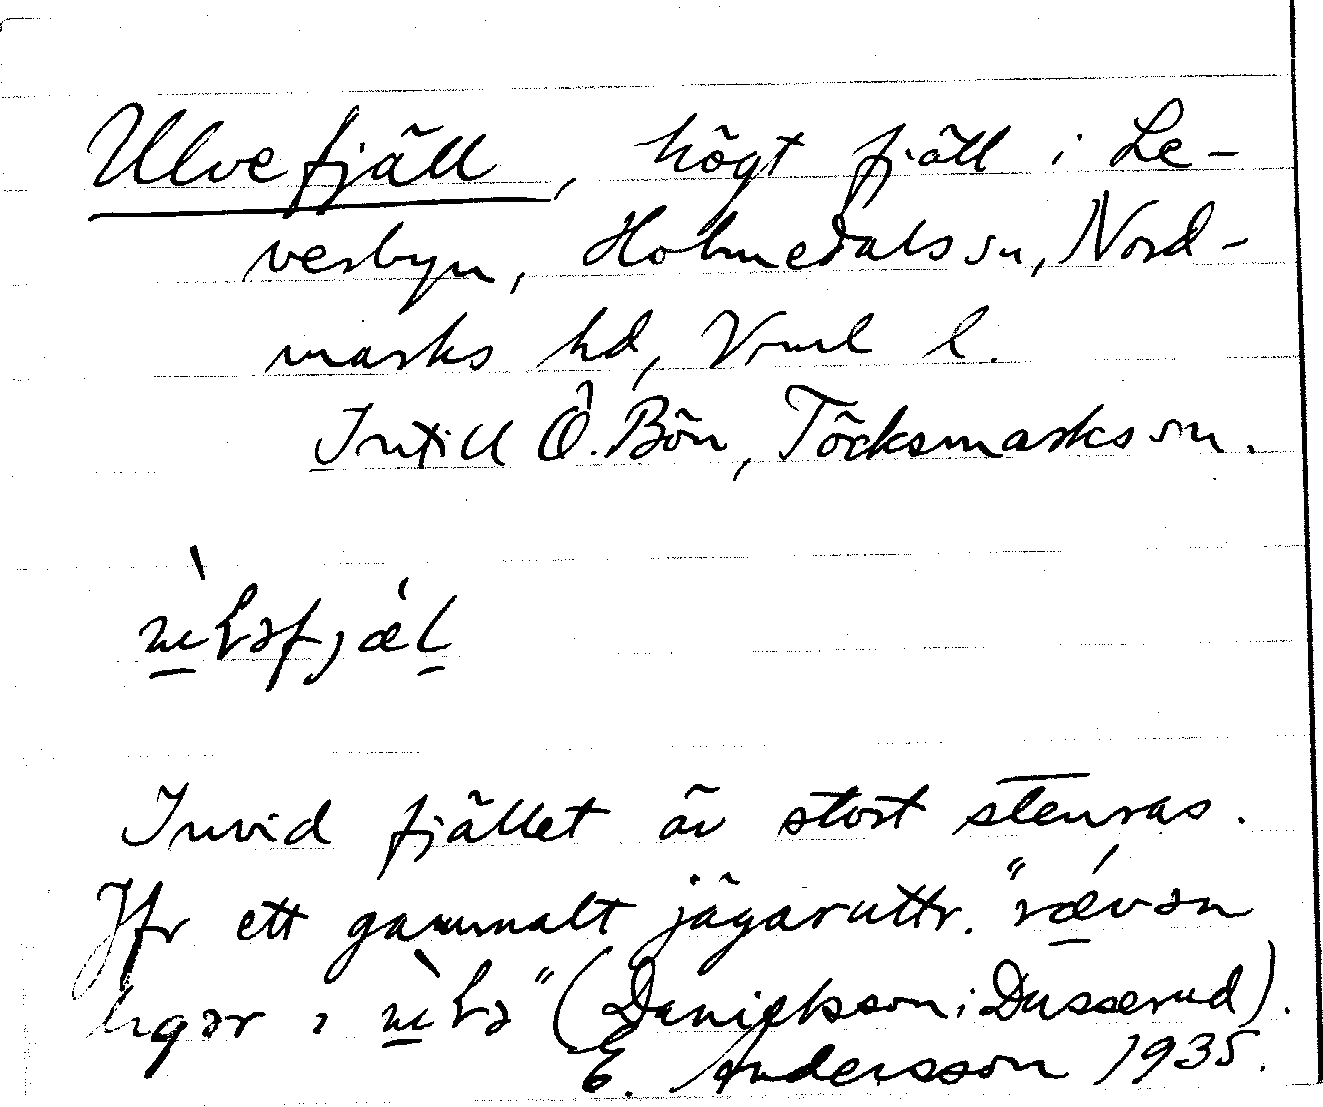 Ulvefjäll, högt fjäll i Le-
verbyn, Holmedals sn, Nord-
marks hd, Vrml l.
Intill Ö. Bön, Töcksmarks sn.
fjæl
Invid fjället är stort stenras.
Jfr ett gammalt jägaruttr. "rævən
ligər i (Danielsson i Dusserud).
E. Andersson 1935.